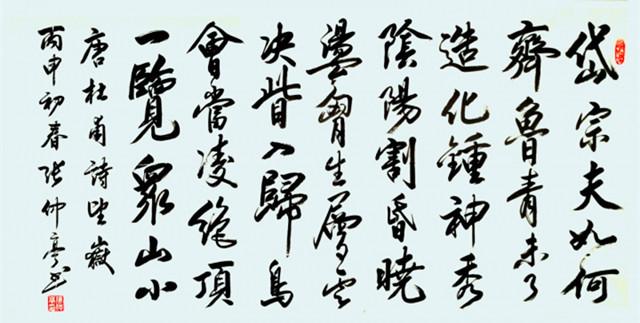 岱宗夫如何
齊魯青未了
造化鍾神秀
陰陽割昏曉
盪胷生層雲
決眥入歸鳥
會當凌絕頂
一覽眾山小
唐杜甫詩望嶽
丙申初春張仲亭書